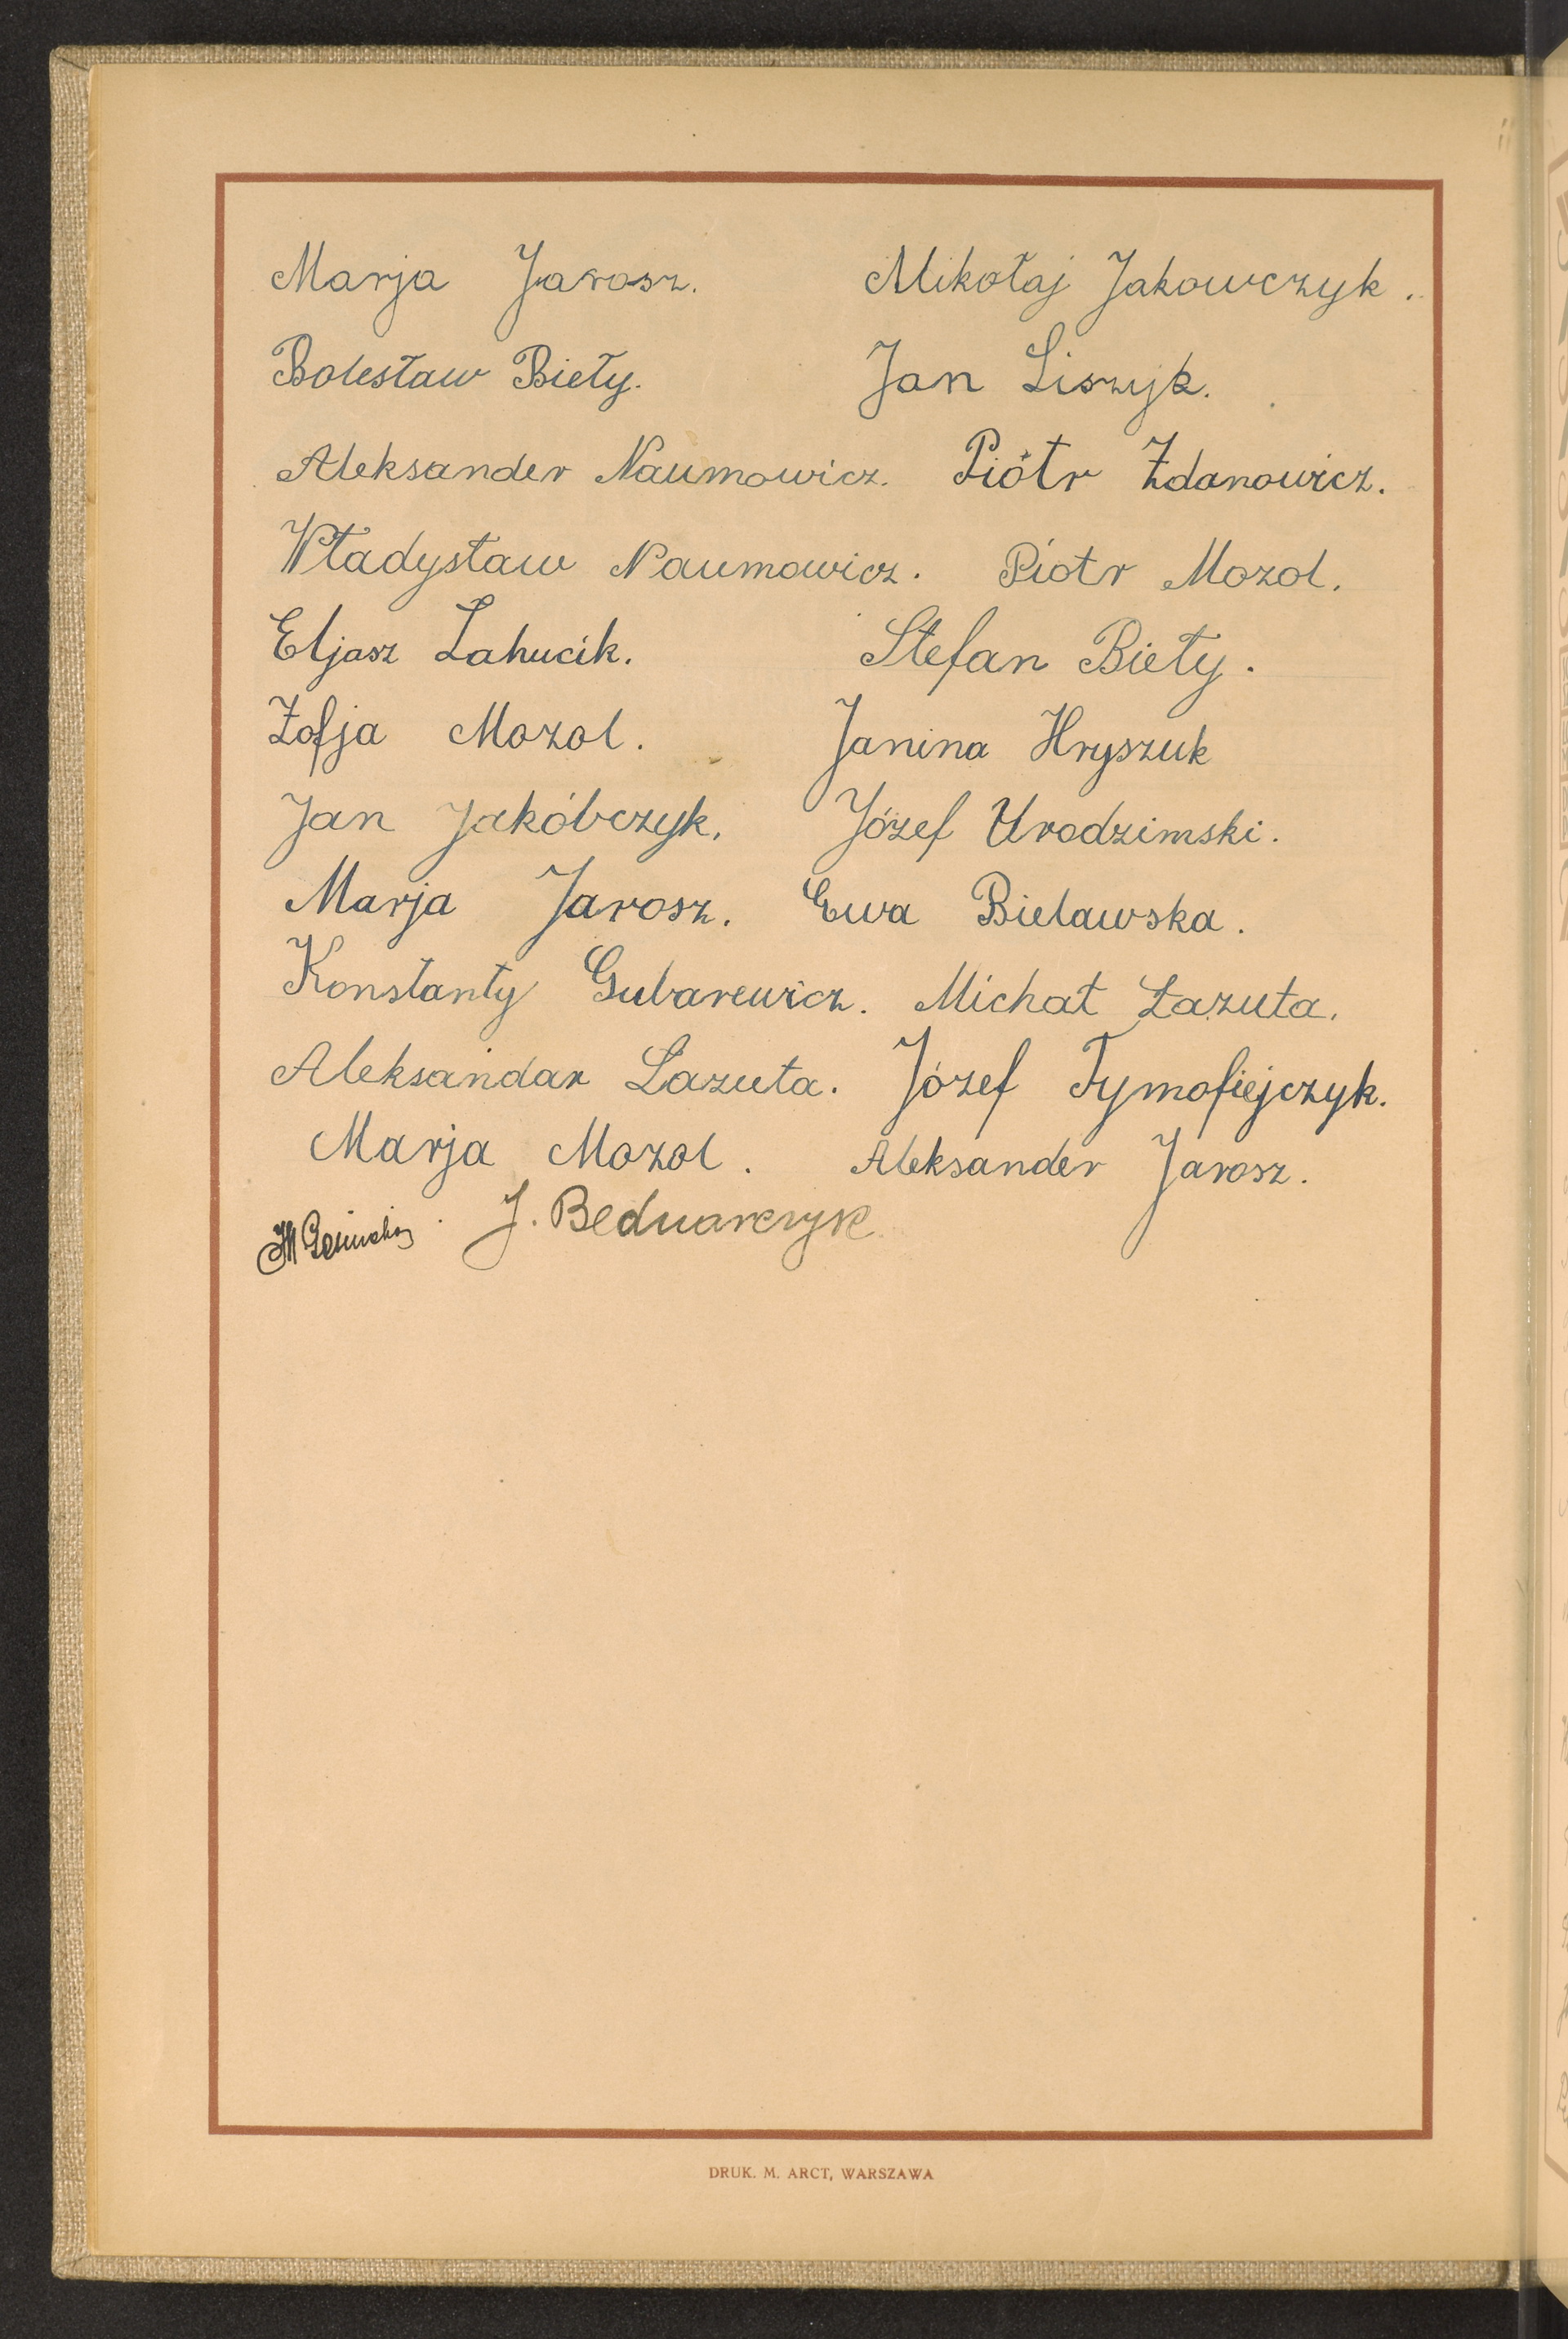 Marja Jarosz. Mikołaj Jakowczyk.
Bolesław Bieły. Jan Liszyk.
Aleksander Naumowicz. Piótr Żdanowicz.
Władysław Naumowicz. Piotr Mozol.
Eljasz Łahucik. Stefan Bieły.
Zofja Mozol. Janina Hryszuk
Jan Jakóbczyk. Józef Urodzimski.
Marja Jarosz. Ewa Bielawska.
Konstanty Gubarewicz. Michał Łazuta.
Aleksandar Łazuta. Józef Tymofiejczyk.
Marja Mozol. Aleksander Jarosz.
J. Bednarczyk
DRUK. M. ARCT, WARSZAWA